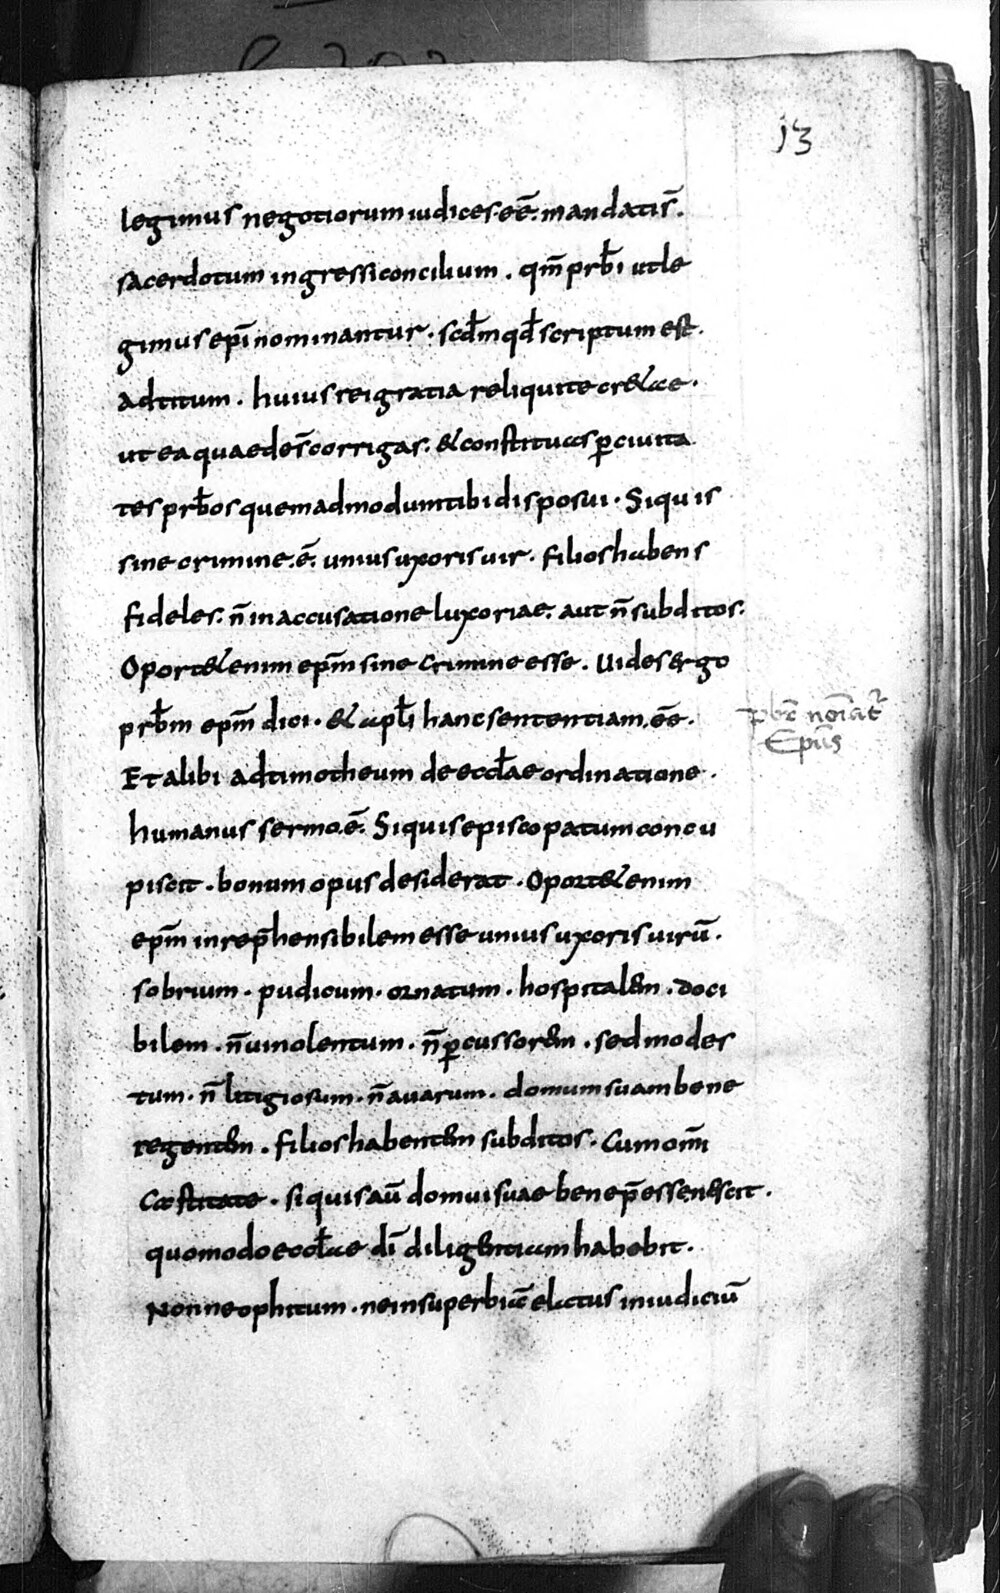 13
legimus negotiorum iudices. eē. mandatis̄.
sacerdotum ingressi concilium. qm̄ prb̄i ut le
gimus epī nominantur. scdm̄ qd̄ scriptum est.
ad titum. huius rei gratia reliqui te cretae.
ut ea quae des̄ corrigas. & constituas ꝑ ciuita
tes prb̄os quemadmodum tibi disposui. Siquis
sine crimine. ē. unius uxoris uir. filios habens
fideles. n̄ in accusatione luxoriae. aut n̄ subditos.
Oport& enim epm̄ sine crimine esse. Uides ergo
prb̄m epm̄ dici. & apl̄i hanc sententiam. eē.
pbr̄ noīat᷑
Epūs
Et alibi ad timotheum de eccl̄ae ordinatione.
humanus sermo. ē. Siquis episcopatum concu
piscit. bonum opus desiderat. Oport& enim
epm̄ inrep̄hensibilem esse unius uxoris uirū.
sobrium. pudicum. ornatum. hospital&m. doci
bilem. n̄ uinolentum. n̄ ꝑcussor&m. sed modes
tum. n̄ litigiosum. n̄ auarum. domum suam bene
regent&m. filios habent&m subditos. Cum omī
castitate. siquis aū domui suae bene p̄esse nescit.
quomodo eccl̄ae dī diligentiam habebit.
Non neophitum. ne in superbiā elatus in iudiciū